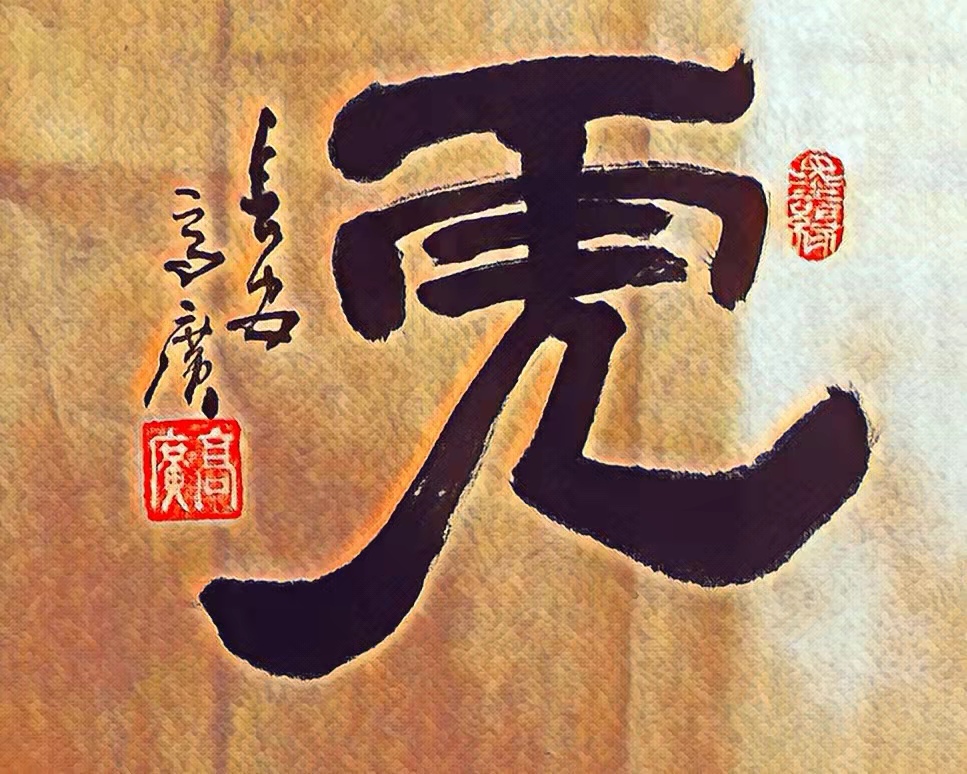 虎
長安
高廣
高廣